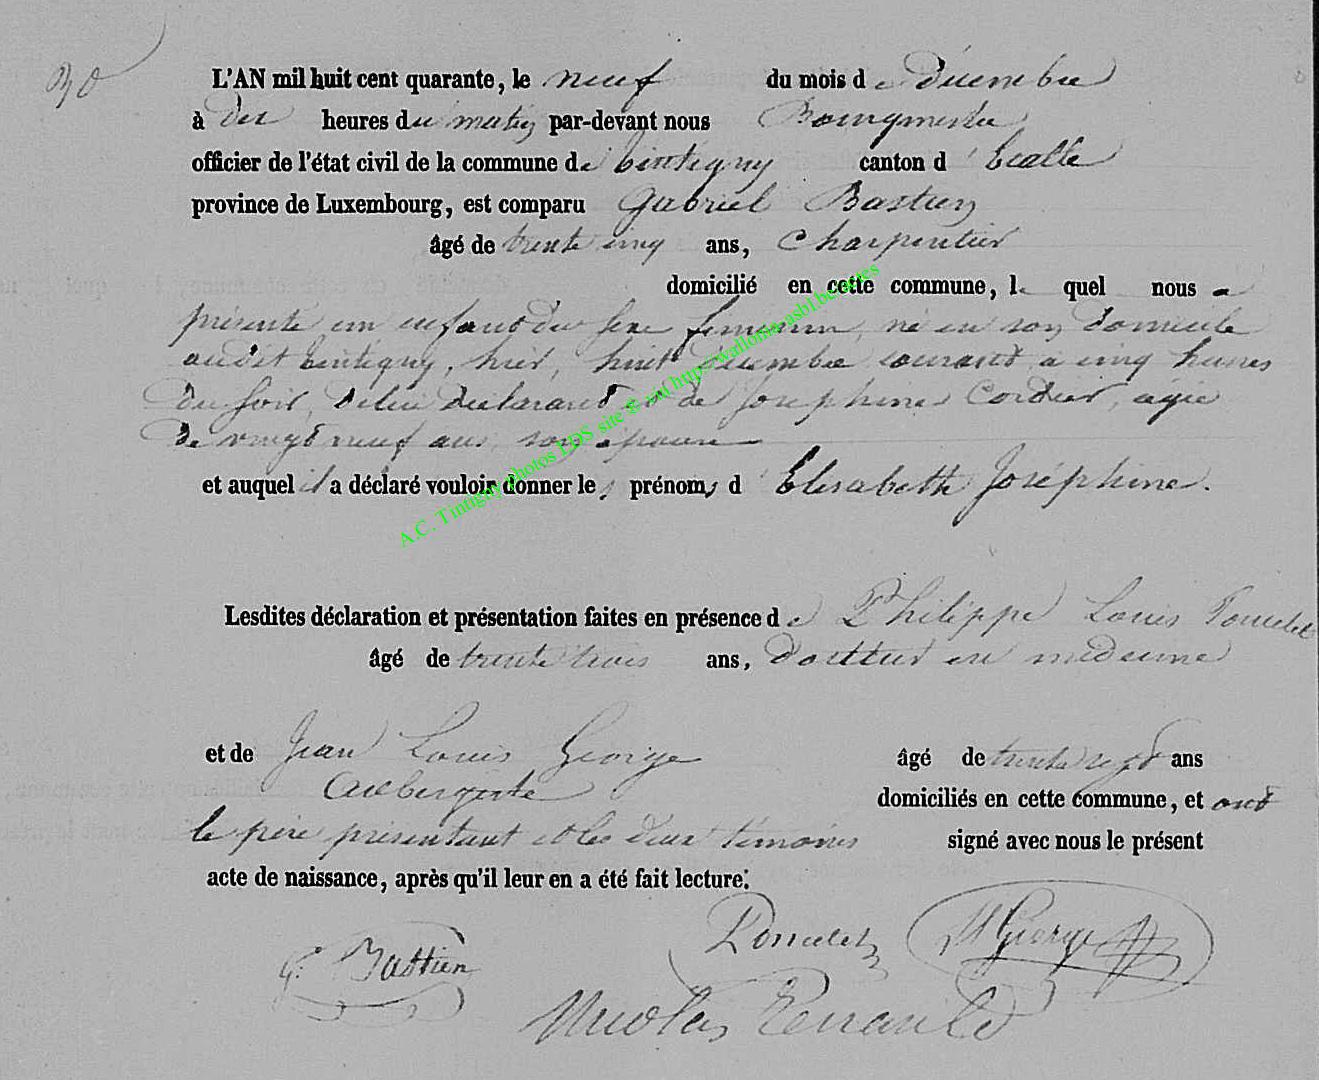 30
L'AN mil huit cent quarante, le neuf du mois de décembre
à dix heures du matin par-devant nous Bourgmestre
officier de l'état civil de la commune de Tintigny canton d' Etalle
province de Luxembourg, est comparu Gabriel Bastien
âgé de trente cinq ans, Charpentier
domicilié en cette commune, le quel nous a
présenté un enfant du sexe féminin, né en son domicile
audit Tintigny, hier, huit décembre courant à cinq heures
du soir, de lui déclarant et de Joséphine Cordier, agée
de vingt neuf ans, son épouse
et auquel il a déclaré vouloir donner les prénoms d' Elisabeth Joséphine.
Lesdites déclaration et présentation faites en présence de Philippe Louis Poncelet
âgé de trente trois ans, docteur en médecine
et de Jean Louis George âgé de trente sept ans
Aubergiste domiciliés en cette commune, et ont
le père présentant et les deux témoins signé avec nous le présent
acte de naissance, après qu'il leur en a été fait lecture.
G. Bastien Poncelet George
Nicolas
A.C. Tintigny photos LDS site & via http://wallonia-asbl.be/actes